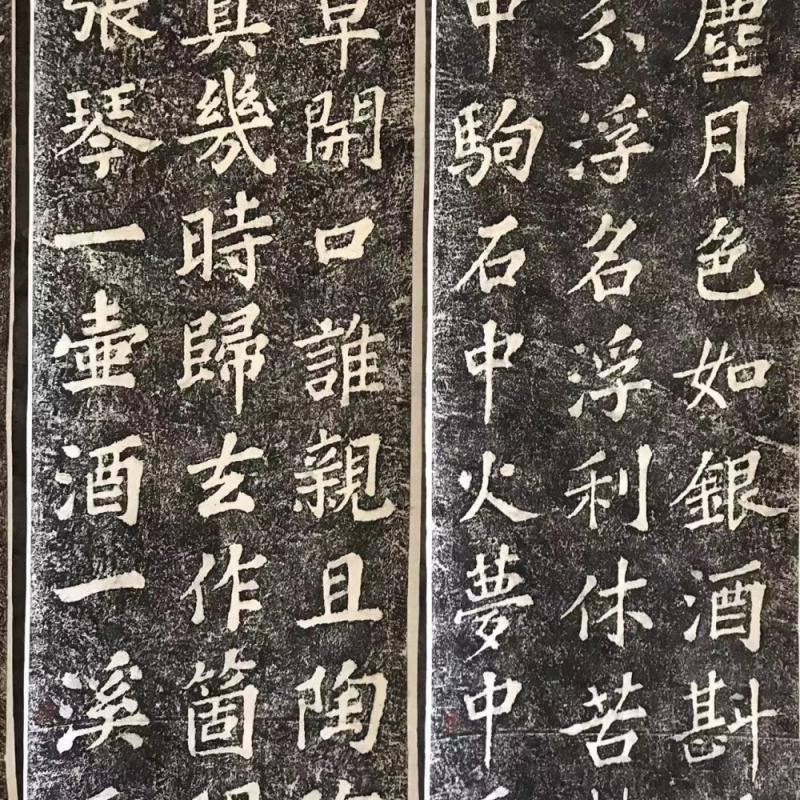 塵月色如銀酒斟
分浮名浮利休苦
中駒石中火夢中
章開口誰親且陶
真幾時歸去作箇
張琴一壺酒一溪